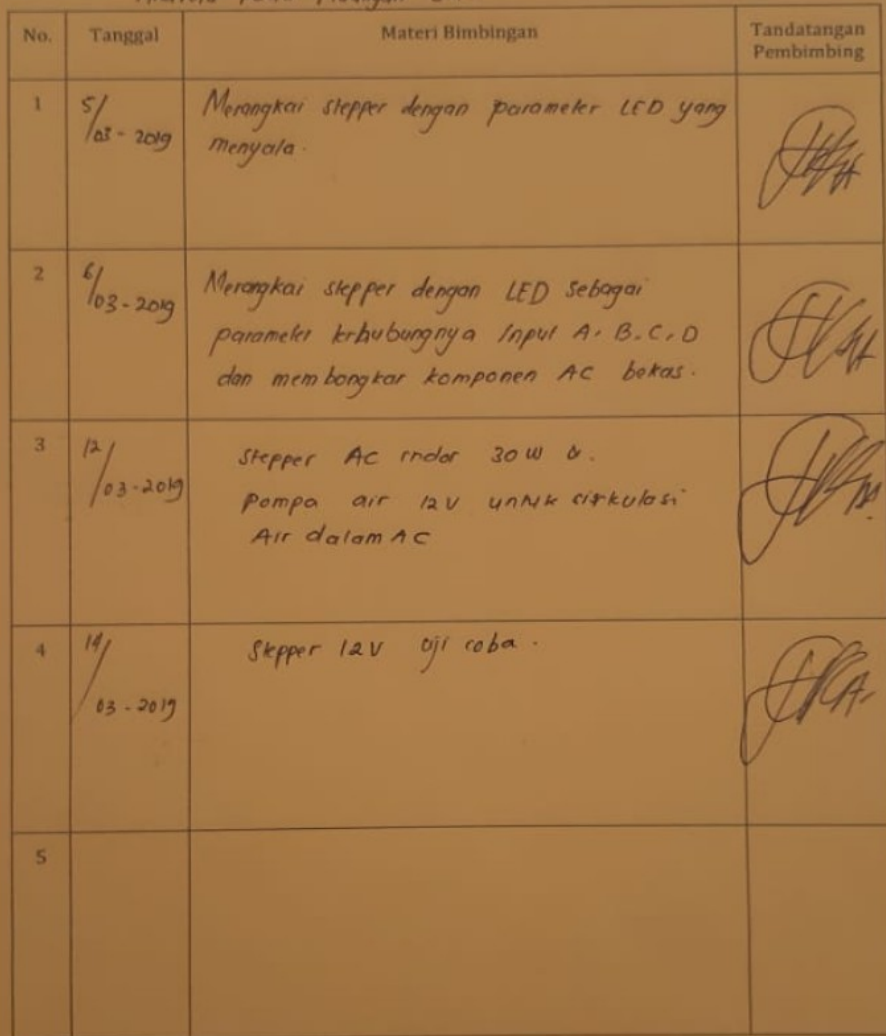 No. Tanggal Materi Bimbingan Tandatangan
Pembimbing
1 5/03-2019 Merangkai stepper dengan parameter LED yang
menyala.
2 6/03-2019 Merangkai stepper dengan LED sebagai
parameter terhubungnya Input A, B, C, D
dan membongkar komponen AC bekas.
3 12/03-2019 Stepper AC indor 30 W &.
Pompa air 12V untuk sirkulasi
Air dalam AC
4 14/03-2019 Stepper 12V uji coba.
5